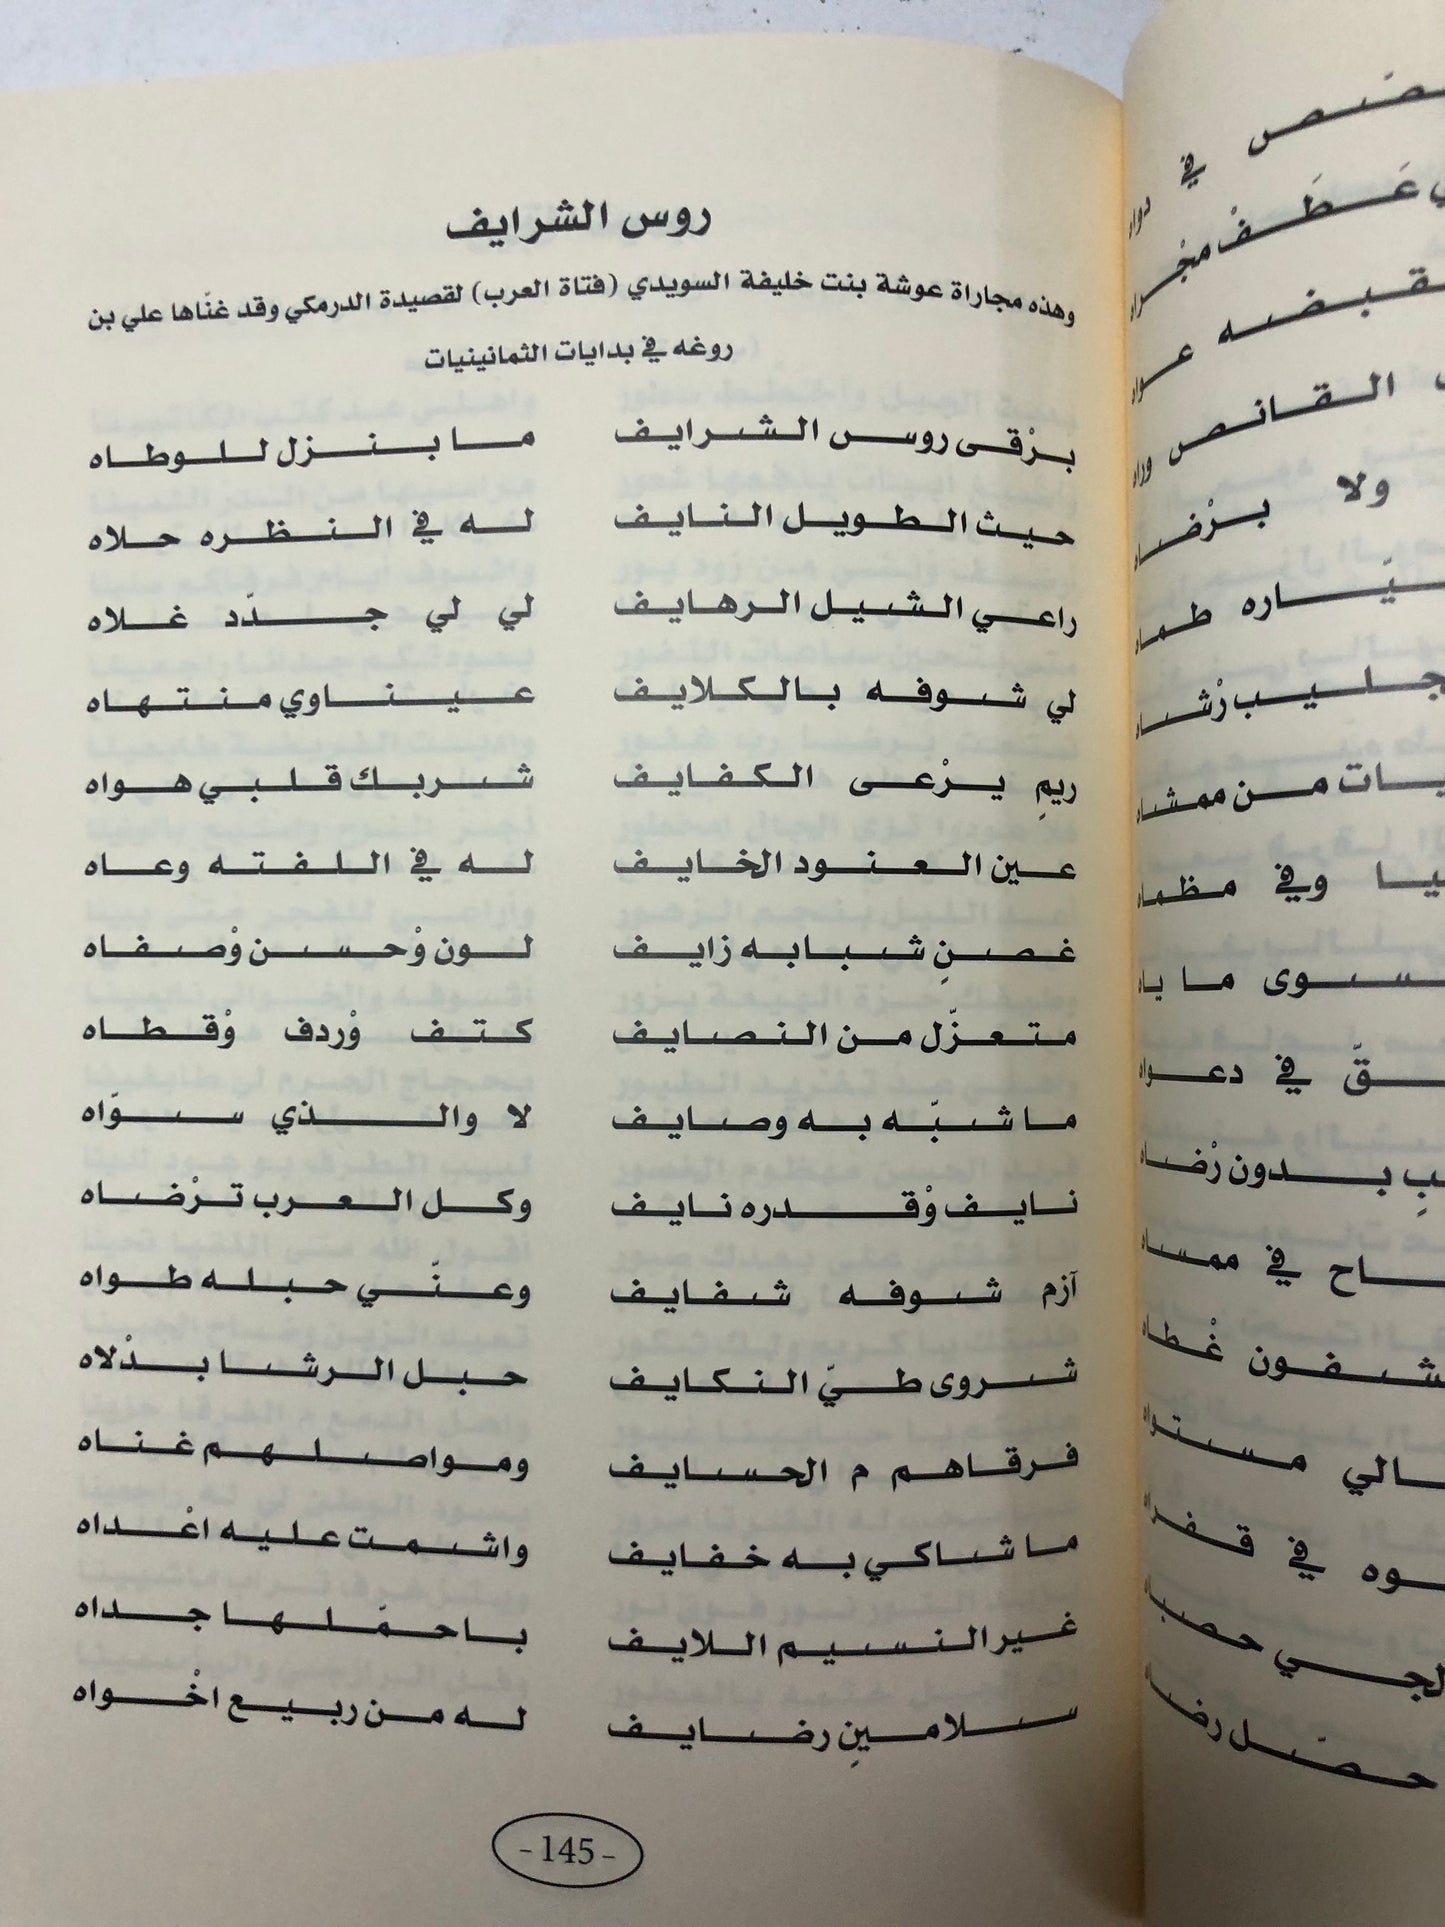 روس الشرايف
وهذه مجاراة عوشة بنت خليفة السويدي (فتاة العرب) لقصيدة الدرمكي وقد غنّاها علي بن
روغه في بدايات الثمانينيات
برْقى روس الشرايف ما بنزل للوطاه
حيث الطويل النايف له في النظره حلاه
راعي الشيل الرهايف لي لي جدّد غلاه
لي شوفه بالكلايف عيناوي منتهاه
ريمِ يرْعى الكفايف شربك قلبي هواه
عين العنود الخايف له في اللفته وعاه
غصنِ شبابه زايف لون وْحسن وْصفاه
متعزّل من النصايف كتف وْردف وْقطاه
ما شبّه به وصايف لا والذي سوّاه
نايف وْقدره نايف وكل العرب ترْضاه
آزم شوفه شفايف وعنّي حبله طواه
شروى طيّ النكايف حبل الرشا بدْلاه
فرقاهم م الحسايف ومواصلهم غناه
ما شاكي به خفايف واشمت عليه اعْداه
غير النسيم اللايف باحمّلها جداه
سلامينِ رضايف له من ربيع اخْواه
-145-
في
عَطَفْ
القانص
ولا
طماه
من ممشاه
وفي مظماه
سوى ما ياه
في دعواه
بدون رْضاه
في ممساه
غْطاه
مستواه
في
حصّل رضاه